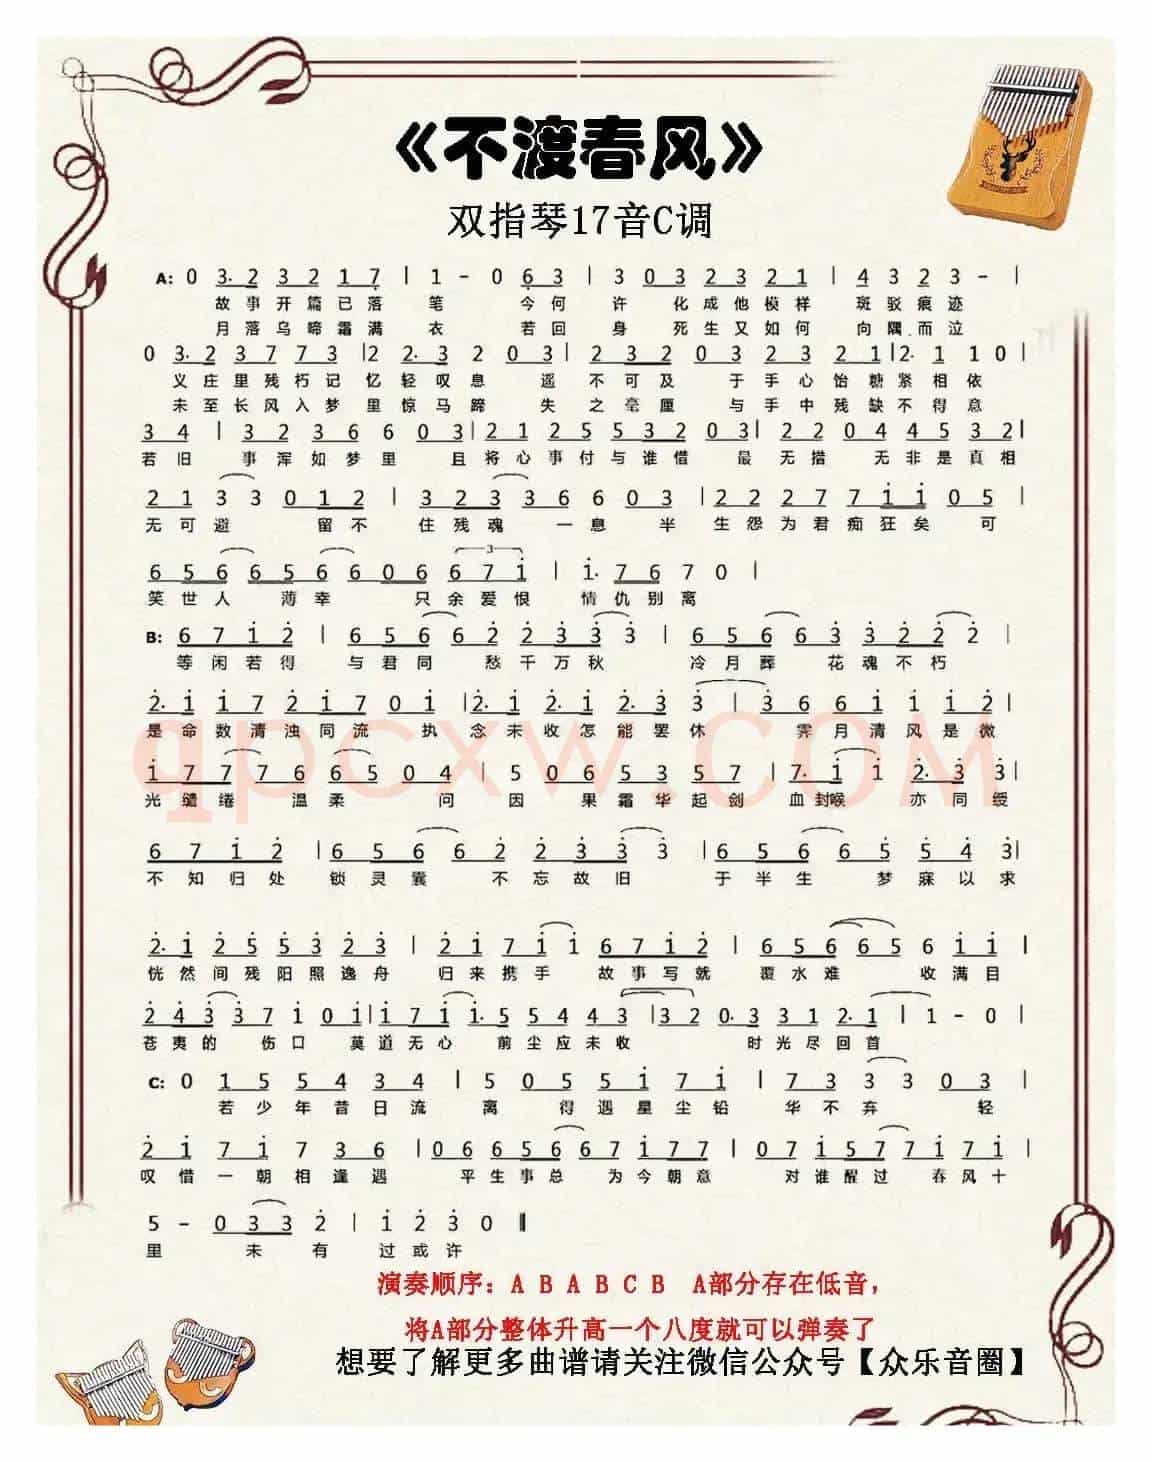 《不渡春风》
双指琴17音C调
A: 0 3. 2 3 2 1 7 | 1 - 0 6 3 | 3 0 3 2 3 2 1 | 4 3 2 3 - |
故事开篇已落 笔 今何 许 化成他模样 斑驳痕迹
月落乌啼霜满 衣 若回 身 死生又如何 向隅.而泣
0 3. 2 3 7 7 3 | 2 2. 3 2 0 3 | 2 3 2 0 3 2 3 2 1 | 2. 1 1 0 |
义庄里残朽记 忆轻叹息 遥 不可及 于手心饴糖紧相依
未至长风入梦 里惊马蹄 失 之毫厘 与手中残缺不得意
3 4 | 3 2 3 6 6 0 3 | 2 1 2 5 5 3 2 0 3 | 2 2 0 4 4 5 3 2 |
若旧 事浑如梦里 且将心事付与谁惜 最 无措 无非是真相
2 1 3 3 0 1 2 | 3 2 3 3 6 6 0 3 | 2 2 2 7 7 i i 0 5 |
无可避 留不 住残魂 一息 半 生怨为君痴狂矣 可
6 5 6 6 5 6 6 0 6 6 7 i | i. 7 6 7 0 |
笑世人 薄幸 只余爱恨 情仇别离
B: 6 7 i 2 | 6 5 6 6 2 2 3 3 3 | 6 5 6 6 3 3 2 2 2 |
等闲若得 与君同 愁千万秋 冷月葬 花魂不朽
2. i i 7 2 i 7 0 i | 2. i 2. i 2. 3 3 | 3 6 6 i i i 2 |
是命数清浊同流 执 念未收怎能罢休 霁月清风是微
i 7 7 7 6 6 5 0 4 | 5 0 6 5 3 5 7 | 7. i i 2. 3 3 |
光缱绻 温柔 问 因 果霜华起剑 血封喉 亦同绶
6 7 i 2 | 6 5 6 6 2 2 3 3 3 | 6 5 6 6 5 5 4 3 |
不知归处 锁灵囊 不忘故旧 于半生 梦寐以求
2. i 2 5 5 3 2 3 | 2 i 7 i i 6 7 i 2 | 6 5 6 6 5 6 i i |
恍然间残阳照逸舟 归来携手 故事写就 覆水难 收满目
2 4 3 3 7 i 0 i | i 7 i i. 5 5 4 4 3 | 3 2 0. 3 3 3 1 2. 1 | 1 - 0 |
苍夷的 伤口 莫道无心 前尘应未收 时光尽回首
C: 0 1 5 5 4 3 4 | 5 0 5 5 i 7 i | 7 3 3 3 0 3 |
若少年昔日流 离 得遇星尘铅 华不弃 轻
2 i 7 i 7 3 6 | 0 6 6 5 6 6 7 i 7 7 | 0 7 i 5 7 7 i 7 i |
叹惜一朝相逢遇 平生事总 为今朝意 对谁醒过 春风十
5 - 0 3 3 2 | i 2 3 0 ‖
里 未 有 过或许
演奏顺序：A B A B C B A部分存在低音，
将A部分整体升高一个八度就可以弹奏了
想要了解更多曲谱请关注微信公众号【众乐音圈】
qpcxw.COM